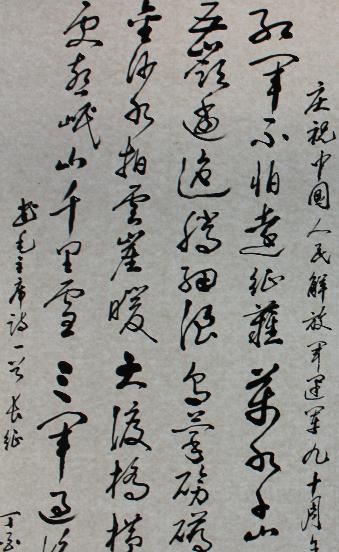 庆祝中国人民解放军建军九十周年
红军不怕遠征難萬水千山
五嶺逶迤腾细浪乌蒙磅礴
金沙水拍雲崖暖大渡橋横
更喜岷山千里雪三军过后
书毛主席詩一首长征 丁酉